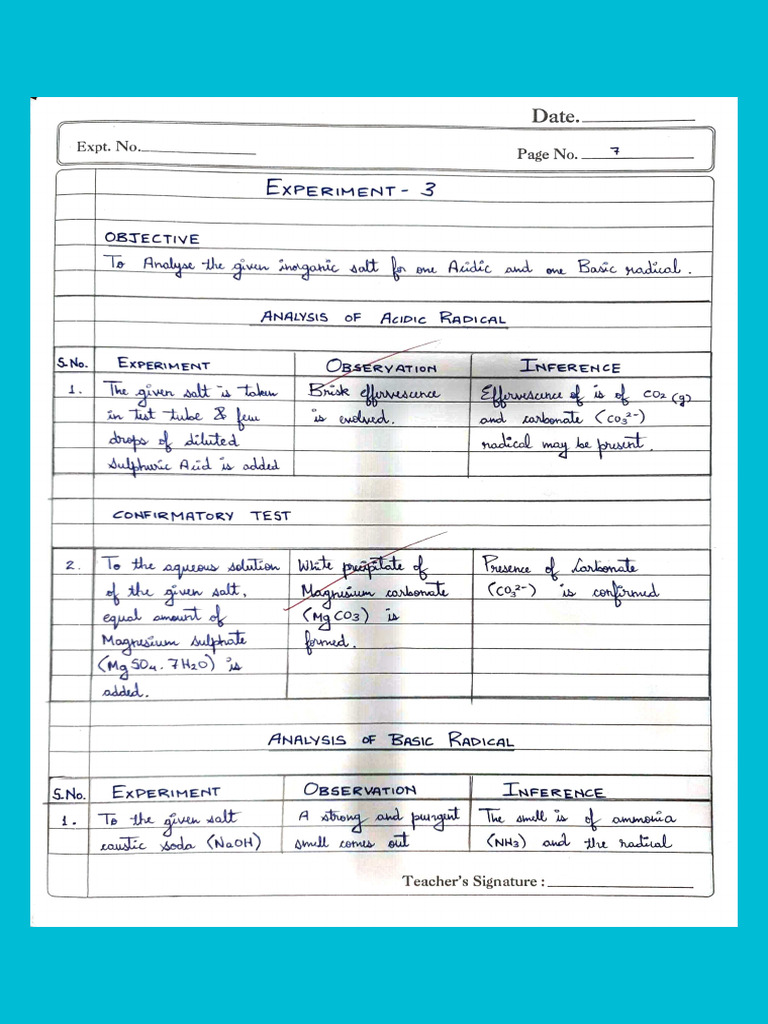 Date.
Expt. No.
Page No. 7
EXPERIMENT - 3
OBJECTIVE
To Analyse the given inorganic salt for one Acidic and one Basic radical.
ANALYSIS OF ACIDIC RADICAL
S.No. EXPERIMENT OBSERVATION INFERENCE
1. The given salt is taken Brisk effervescence Effervescence of is of CO2 (g)
in test tube & few is evolved. and carbonate (CO3²⁻)
drops of diluted radical may be present.
sulphuric Acid is added
CONFIRMATORY TEST
2. To the aqueous solution White precipitate of Presence of Carbonate
of the given salt, Magnesium carbonate (CO3²⁻) is confirmed
equal amount of (MgCO3) is
Magnesium sulphate formed.
(MgSO4.7H2O) is
added.
ANALYSIS OF BASIC RADICAL
S.No. EXPERIMENT OBSERVATION INFERENCE
1. To the given salt A strong and pungent The smell is of ammonia
caustic soda (NaOH) smell comes out (NH3) and the radical
Teacher's Signature :